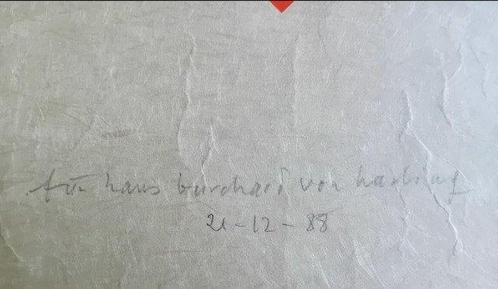 für hans burchard von harling
21-12-88